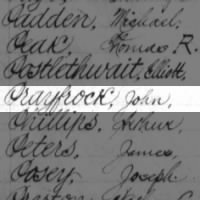 Padden, Michael,
Peak, Thomas R.
Postlethwait, Elliott,
Prayfrock, John,
Phillips, Arthur,
Peters, James,
Posey, Joseph